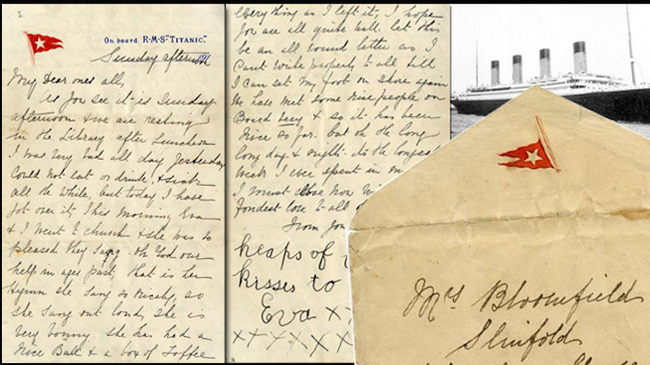 2
On board R·M·S "TITANIC."
Sunday afternoon
My Dear ones all,
As you see it is Sunday
afternoon & we are resting
in the Library after Luncheon
I was very bad all day Yesterday
could not eat or drink, & sick
all the while, but today I have
got over it, This morning Eva
& I went to church & she was so
pleased they sang Oh God our
help in ages past, that is her
Hymn she sang so nicely, so
she sang out loud, she is
very bonny. she has had a
nice Ball & a box of Toffee
everything as I left it, I hope
you are all quite well. let this
be an all round letter as I
Cant write properly to all till
I can set my foot on shore again
We have met some nice people on
Board & so it has been
nice so far. but oh the long
long day & night its the longest
Week I ever spent in
I must close now
Fondest love to all
From
heaps of
kisses to
Eva xx
xxxxxx
Mrs Bloomfield
Slinfold